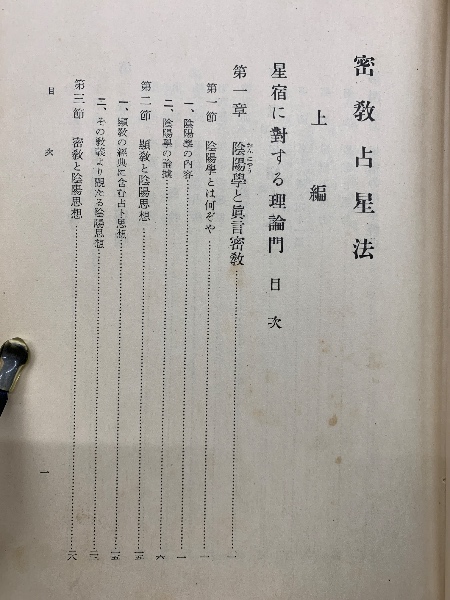 密敎占星法
上編
星宿に對する理論門 目次
第一章 陰陽學と眞言密敎…………一
第一節 陰陽學とは何ぞや…………一
一、陰陽學の內容…………一
二、陰陽學の論據…………六
第二節 顯敎と陰陽思想…………一五
一、顯敎の經典に含む占卜思想…………一五
二、その敎義より觀たる陰陽思想…………二三
第三節 密敎と陰陽思想…………二六
目次
一